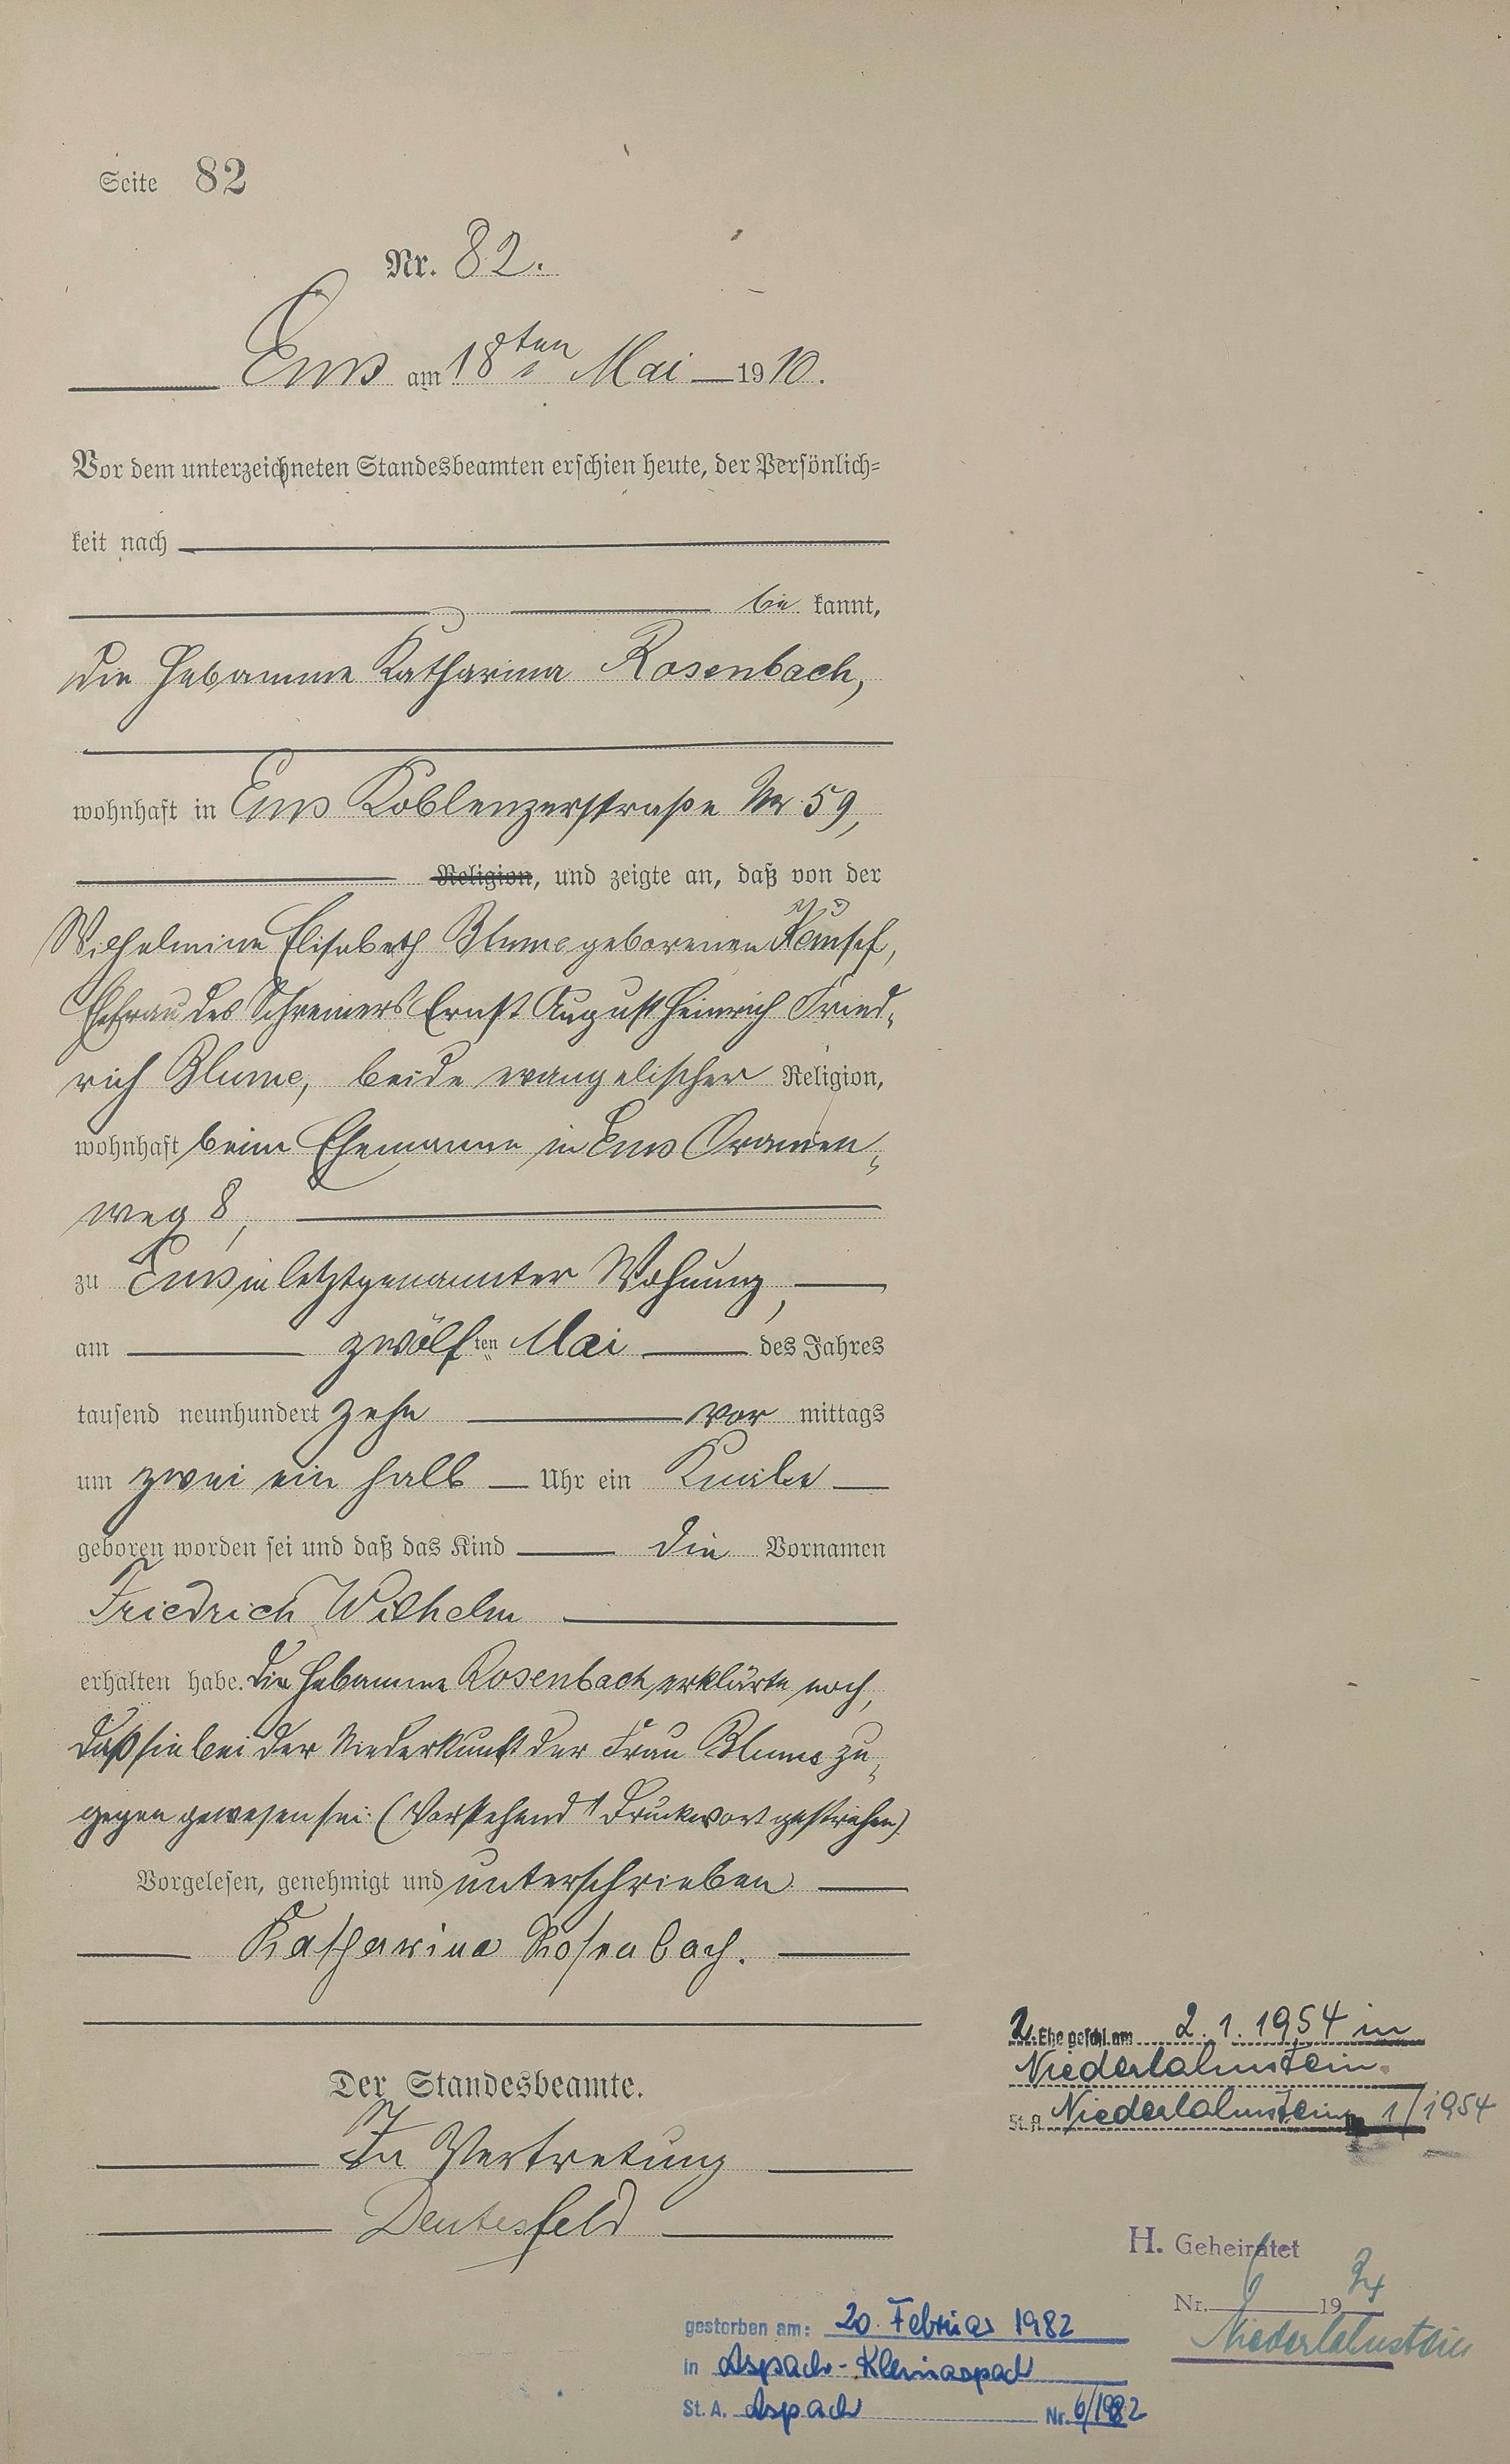 Seite 82
Nr. 82.
Ems am 18ten Mai 1910.
Vor dem unterzeichneten Standesbeamten erschien heute, der Persönlich=
keit nach
be kannt,
die Hebamme Katharina Rosenbach,
wohnhaft in Ems Koblenzerstraße Nr. 59,
Religion, und zeigte an, daß von der
Wilhelmine Elisabeth Blume geborenen
Ehefrau des Schreiners Ernst August Heinrich Fried-
rich Blume, beide evangelischer Religion,
wohnhaft beim Ehemanne in Ems Oranien-
weg 8,
zu Ems in letztgenannter Wohnung,
am zwölften Mai des Jahres
tausend neunhundert zehn vor mittags
um zwei ein halb Uhr ein Knabe
geboren worden sei und daß das Kind die Vornamen
Friedrich Wilhelm
erhalten habe. Die Hebamme Rosenbach erklärte noch,
daß sie bei der Niederkunft der Frau Blume zu-
gegen gewesen sei. (Vorstehend 1 Druckwort gestrichen)
Vorgelesen, genehmigt und unterschrieben
Katharina Rosenbach.
Der Standesbeamte.
In Vertretung
Deutesfeld
2. Ehe geschl. am 2.1.1954 in
Niederlahnstein.
St.A. Niederlahnstein 1/1954
H. Geheiratet
Nr. 19
Niederlahnstein
gestorben am: 20. Februar 1982
in Aspach-Kleinaspach
St. A. Aspach Nr. 6/1982